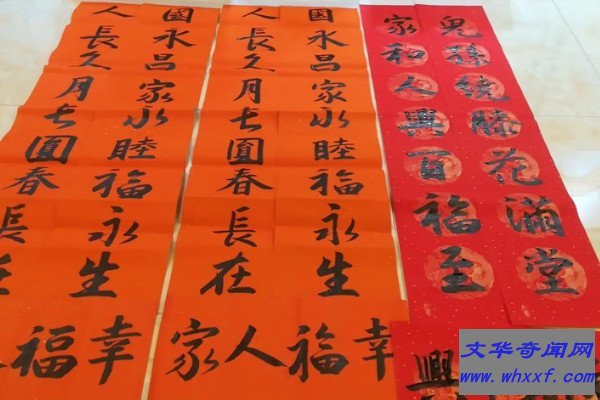 國永昌家永睦福永生
人長久月長圓春長
福幸
國永昌家永睦福永生
人長久月長圓春長在
幸福人家
兒孫繞膝花滿堂
家和人興百福至
興
文华奇闻网
www.whxxf.com